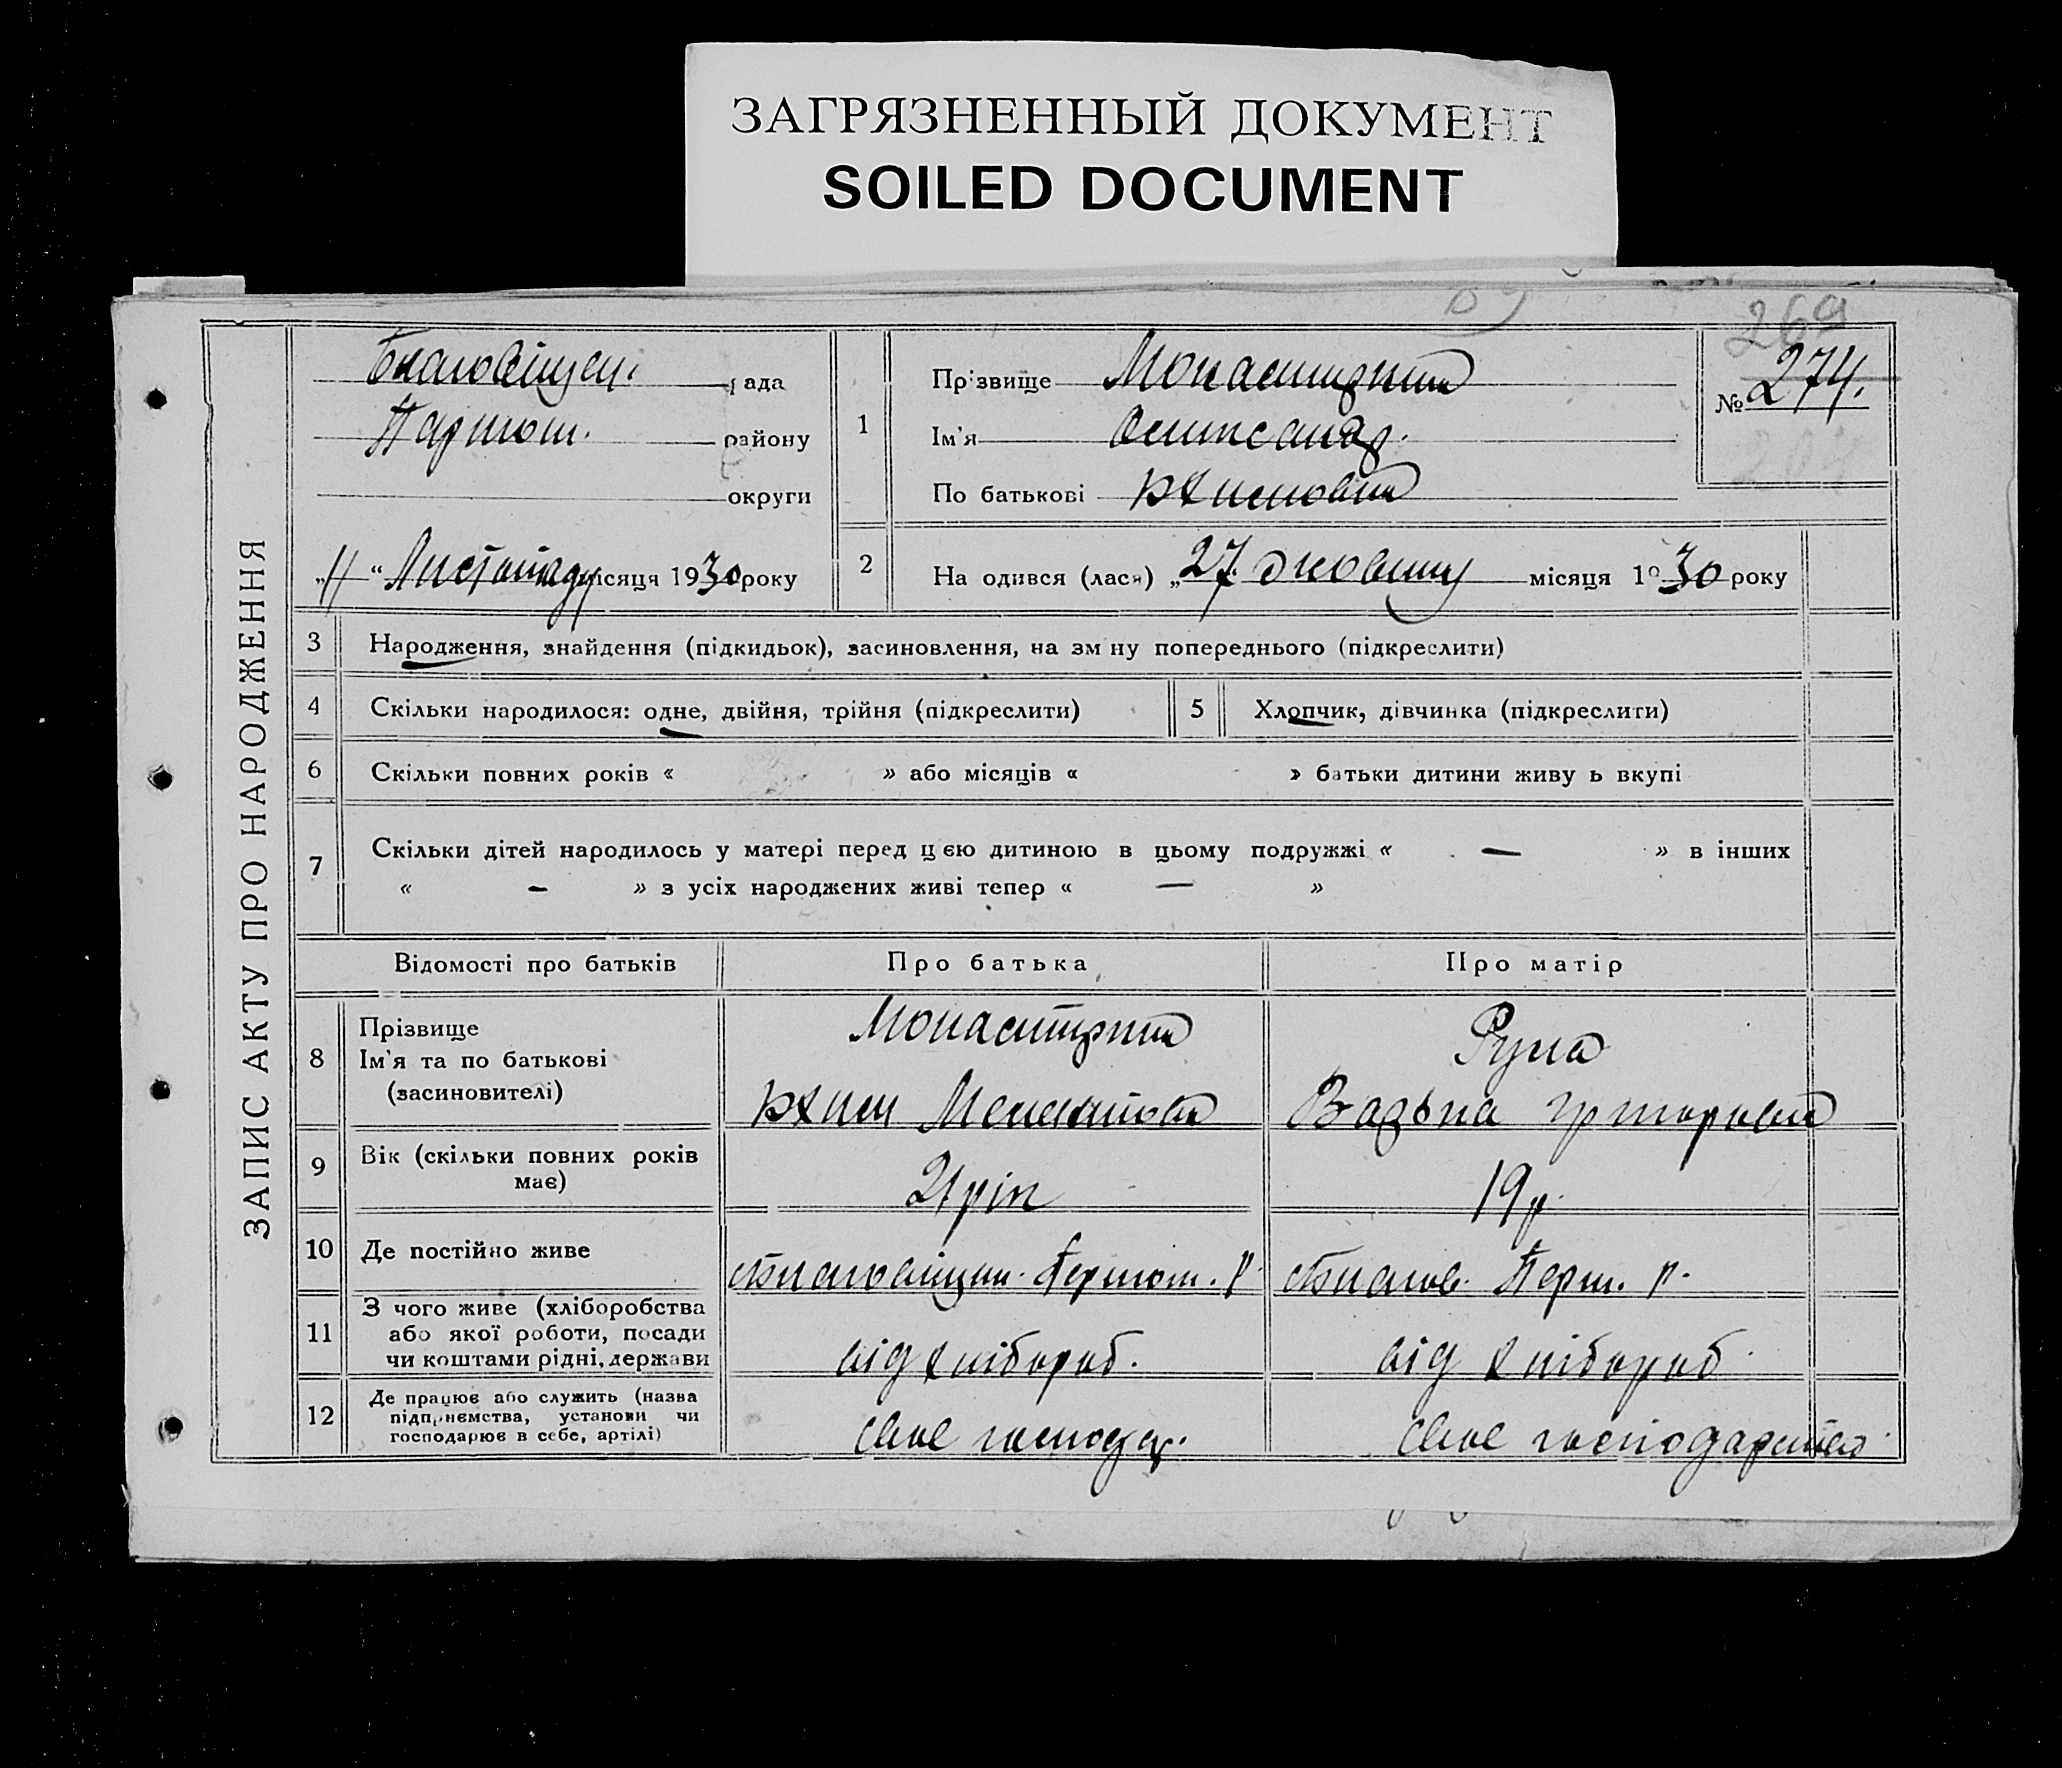 ЗАГРЯЗНЕННЫЙ ДОКУМЕНТ
SOILED DOCUMENT
269
ЗАПИС АКТУ ПРО НАРОДЖЕННЯ
Благовіщен. рада
району
округи
„11“ Листопаду місяця 1930 року
1
Прізвище
Ім'я Олександр.
По батькові
№ 274.
2
На одився (лася) „27 жовтну місяця 1930 року
3 Народження, знайдення (підкидьок), засиновлення, на зм ну попереднього (підкреслити)
4 Скільки народилося: одне, двійня, трійня (підкреслити)
5 Хлопчик, дівчинка (підкреслити)
6 Скільки повних років « » або місяців « » батьки дитини живу ь вкупі
7 Скільки дітей народилось у матері перед цєю дитиною в цьому подружжі « — » в інших
« — » з усіх народжених живі тепер « — »
Відомості про батьків Про батька Про матір
8 Прізвище
Ім'я та по батькові
(засиновителі)
9 Вік (скільки повних років
має)
21 рік 19 р.
10 Де постійно живе
11 З чого живе (хліборобства
або якої роботи, посади
чи коштами рідні, держави
від хлібороб. від хлібороб.
12 Де працює або служить (назва
підприємства, установи чи
господарює в себе, артілі)
своє господар. своє господарство